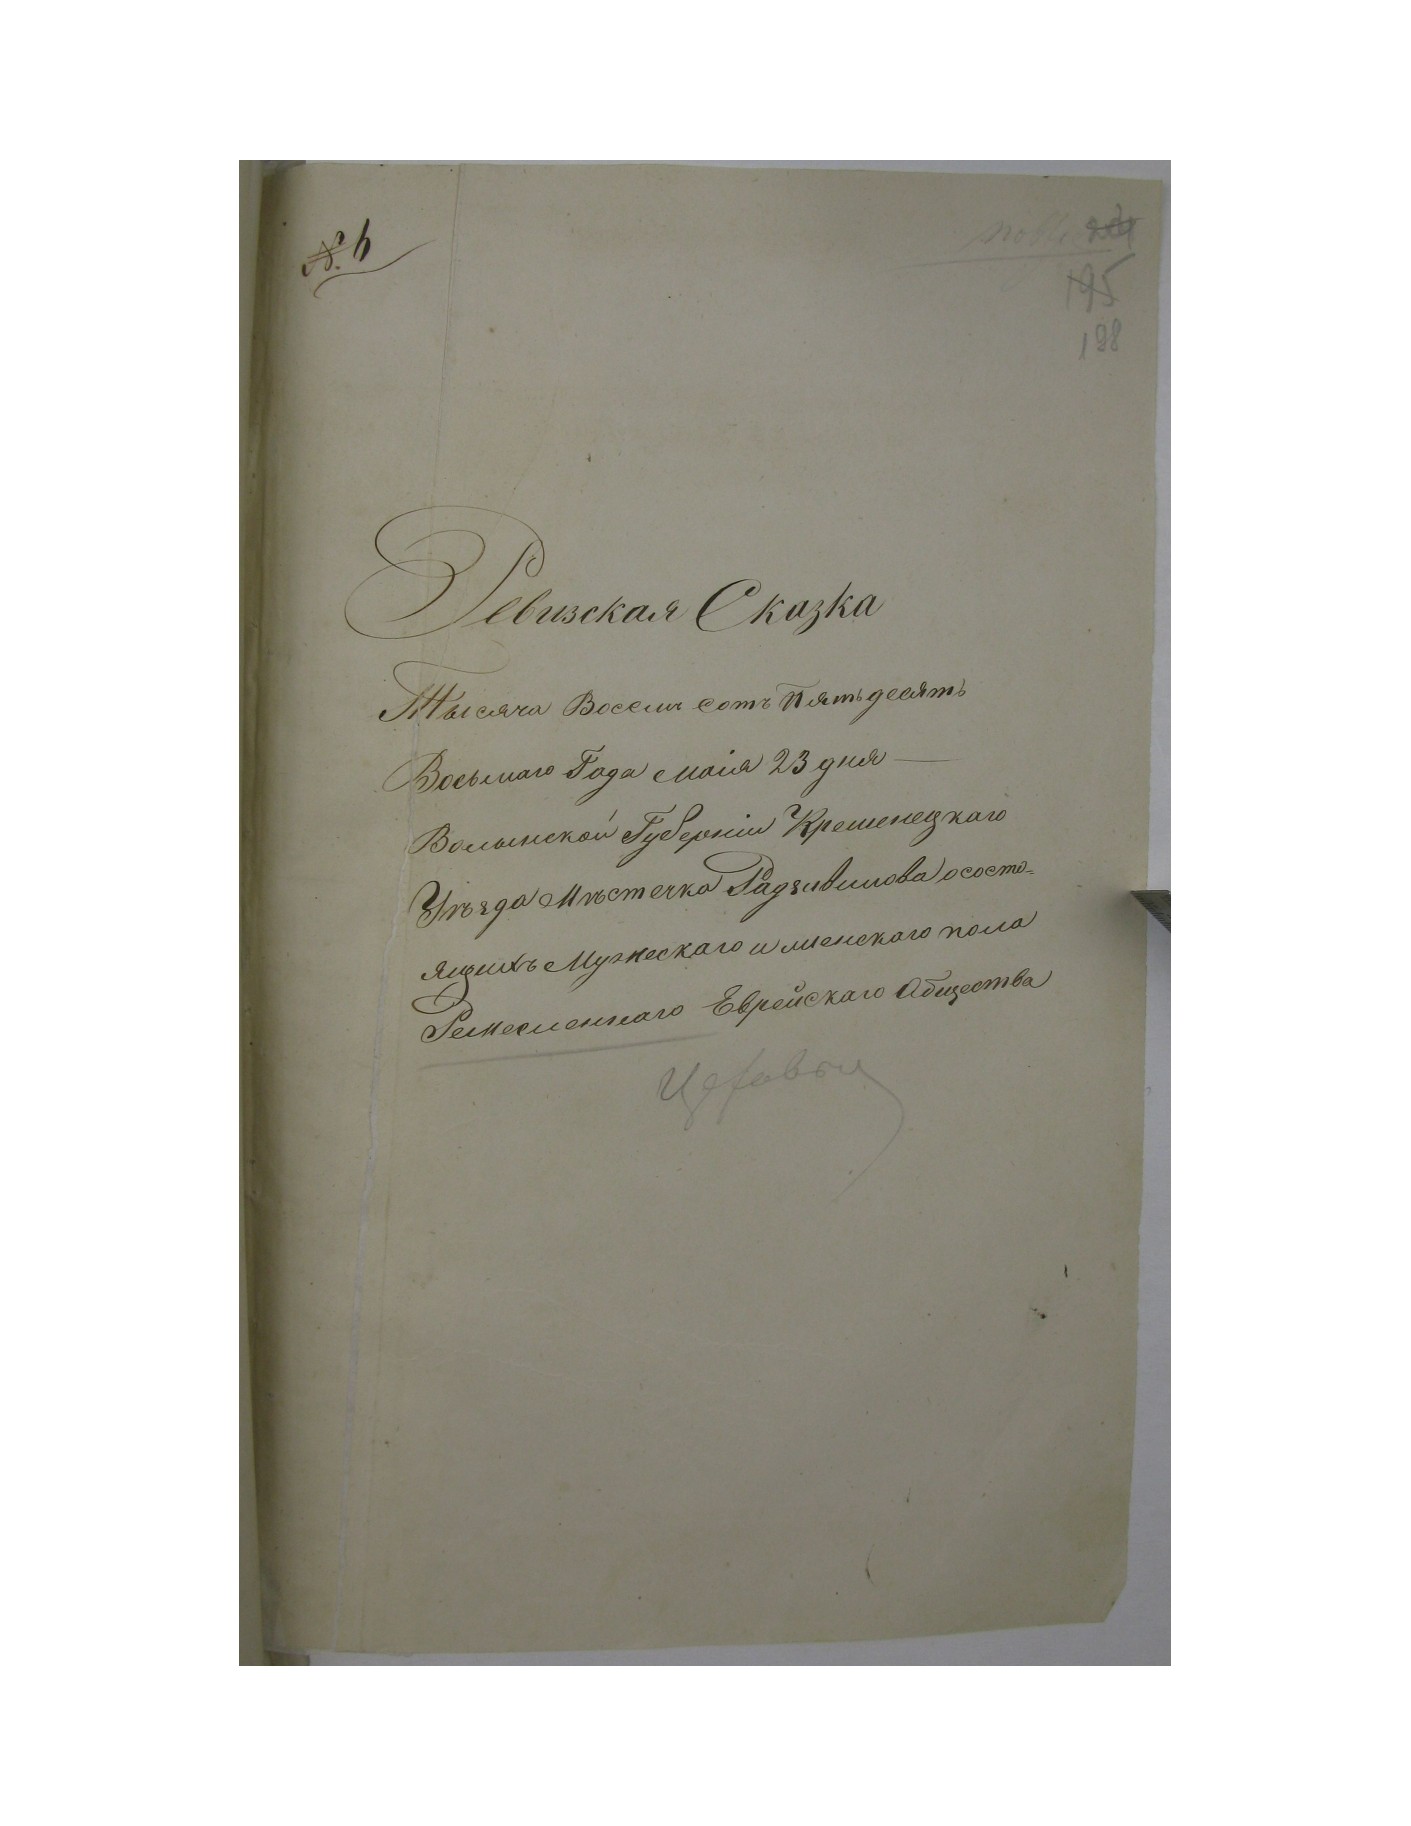 № 6
195
198
Ревизская Сказка
Тысяча Восемь сотъ Пятьдесятъ
Восьмаго Года маія 23 дня —
Волынской Губерніи Кременецкаго
Уѣзда Мѣстечка Радзивилова о состо-
ящихъ Мужескаго и женскаго пола
Ремесленнаго Еврейскаго Общества
Цеховыя